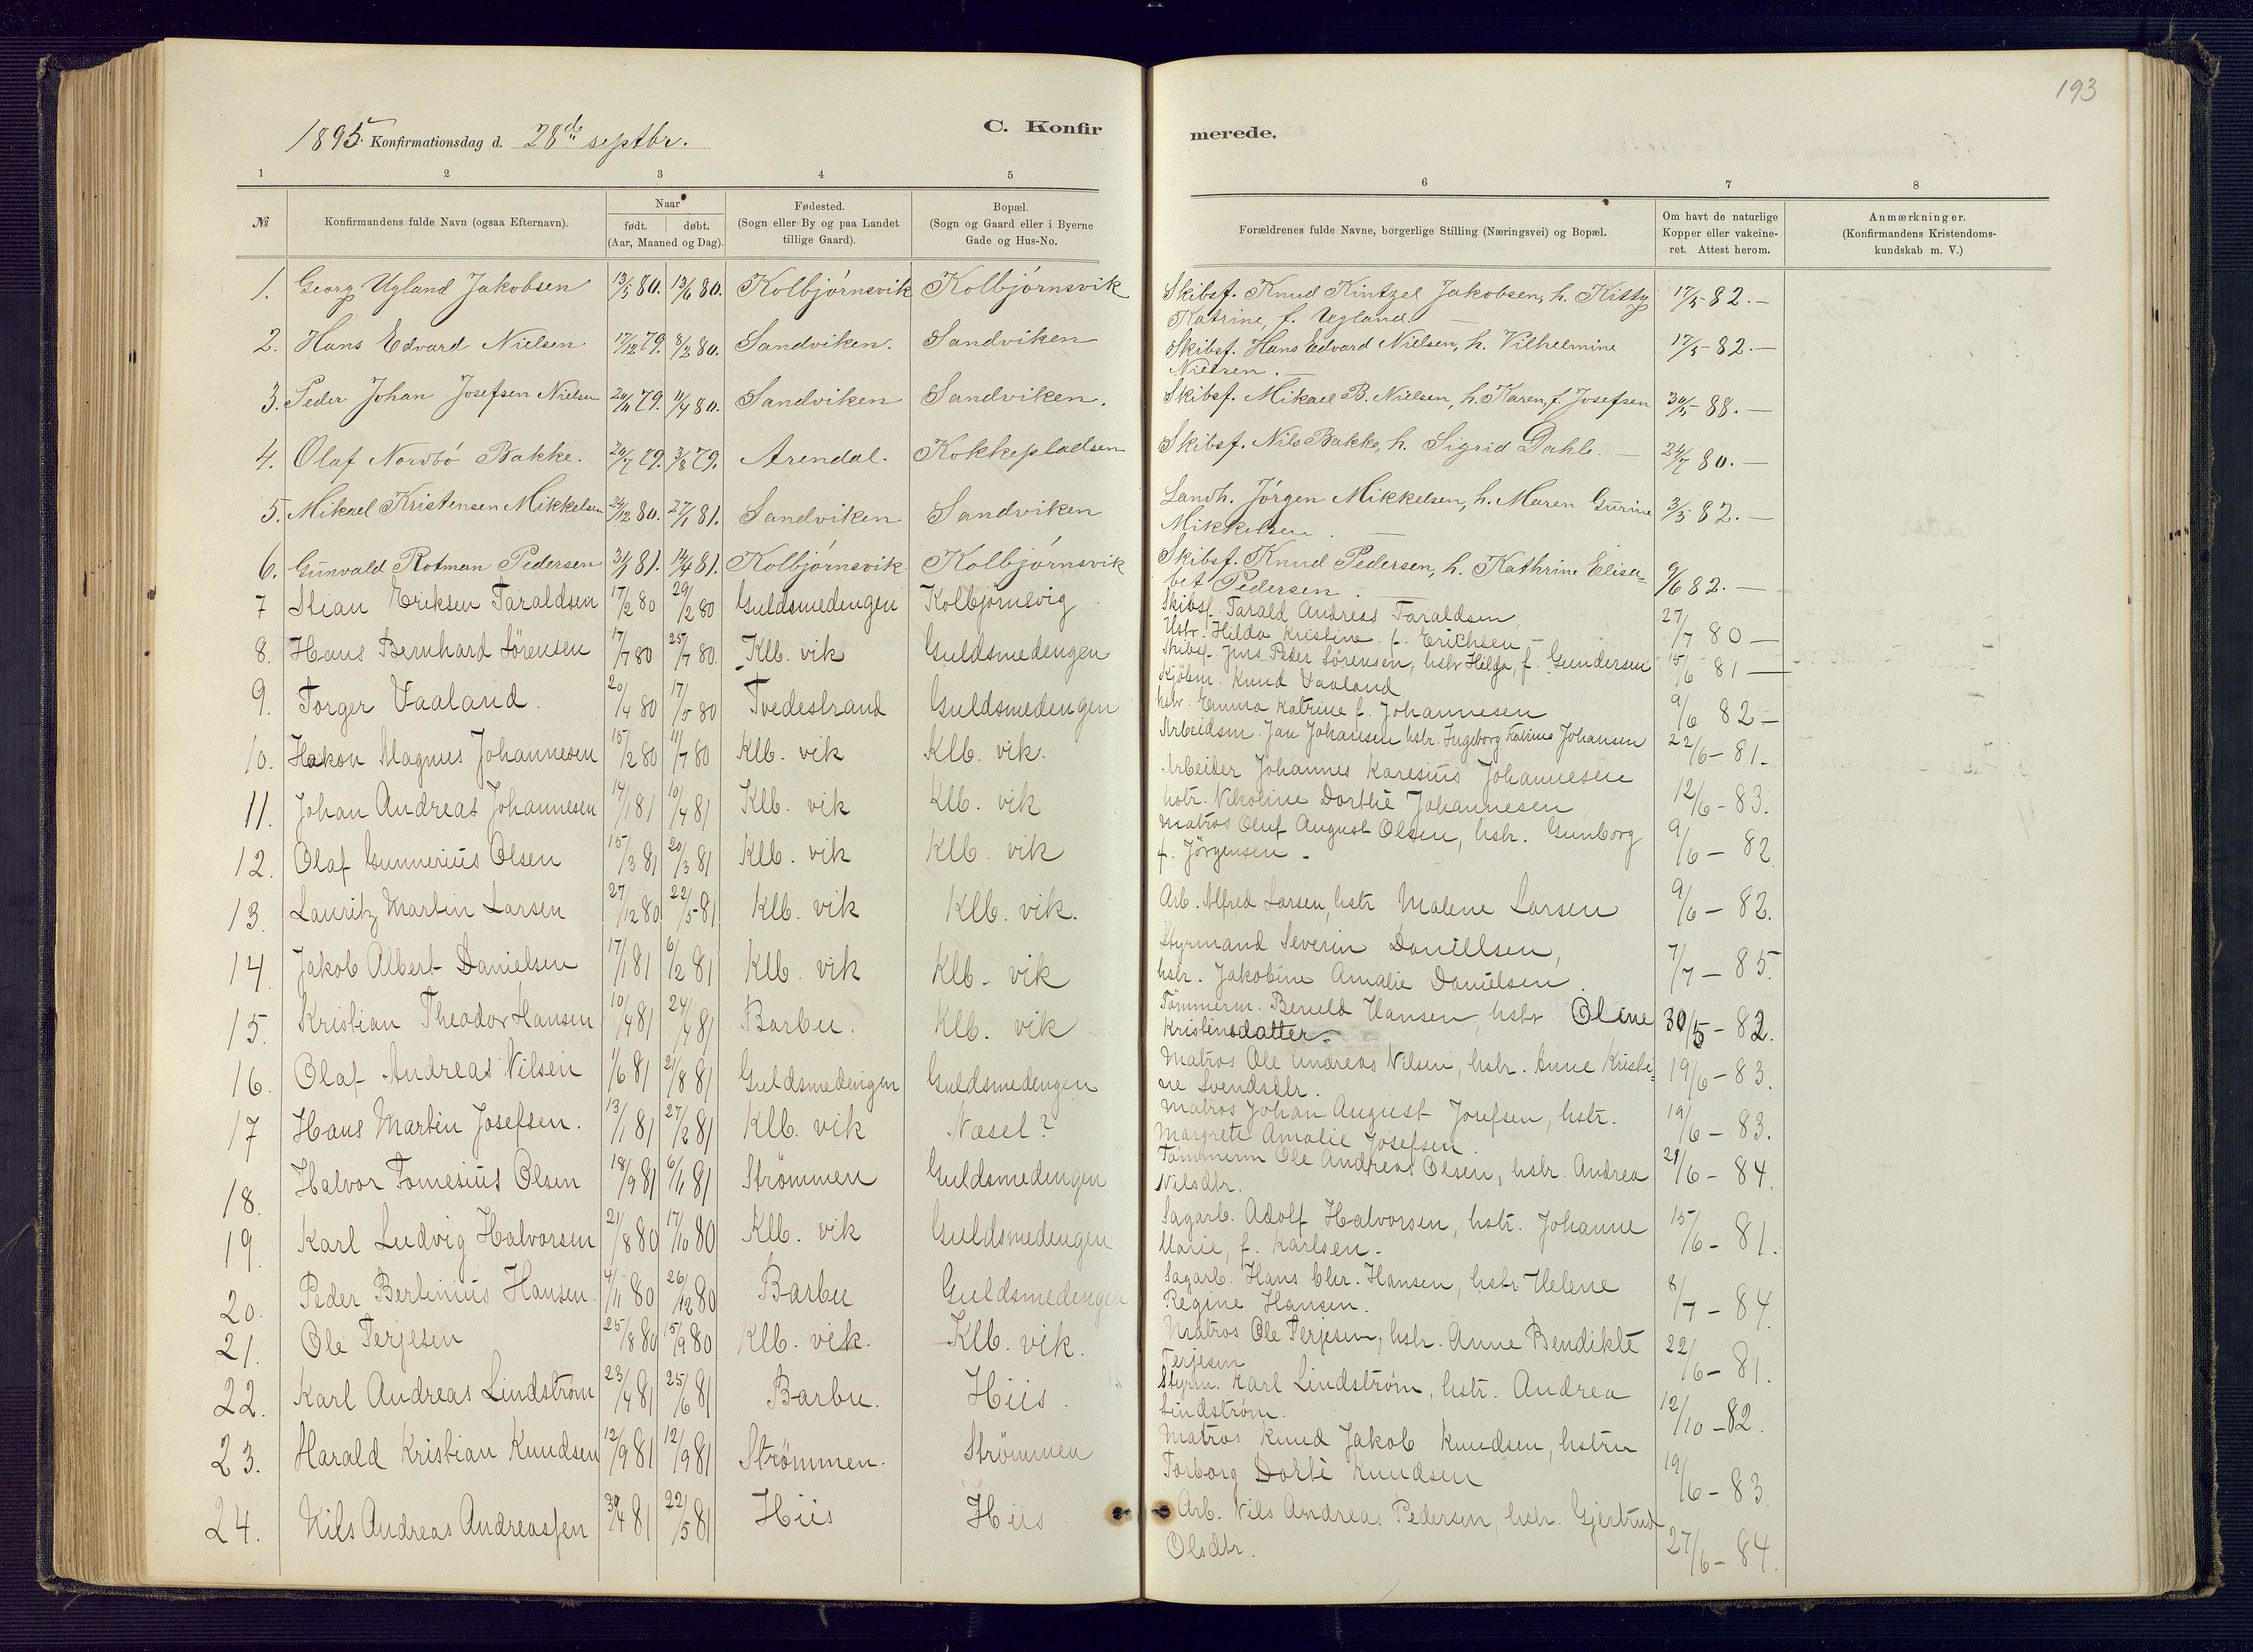 193
1895 Konfirmationsdag d. 28de septbr.
C. Konfirmerede.
1 2 3 4 5 6 7 8
№ Konfirmandens fulde Navn (ogsaa Efternavn). Naar født. døbt. (Aar, Maaned og Dag). Fødested. (Sogn eller By og paa Landet tillige Gaard). Bopæl. (Sogn og Gaard eller i Byerne Gade og Hus-No. Forældrenes fulde Navne, borgerlige Stilling (Næringsvei) og Bopæl. Om havt de naturlige Kopper eller vakcineret. Attest herom. Anmærkninger. (Konfirmandens Kristendomskundskab m. V.)
1. Georg Ugland Jakobsen 13/5 80. 13/6 80. Kolbjörnsvik Kolbjörnsvik Skibsf. Knud Kintzel Jakobsen, h. Kitty Katrine, f. Ugland. — 17/5 82. —
2. Hans Edvard Nielsen 17/12 79. 8/2 80. Sandviken. Sandviken Skibsf. Hans Edvard Nielsen, h. Vilhelmine Nielsen. — 17/5 82. —
3. Peder Johan Josefsen Nielsen 20/11 79. 11/4 80. Sandviken Sandviken. Skibsf. Mikael B. Nielsen, h. Karen, f. Josefsen 30/5 88. —
4. Olaf Nordbö Bakke. 20/7 79. 3/8 79. Arendal. Kokkepladsen Skibsf. Nils Bakke, h. Sigrid Dahle. — 24/7 80. —
5. Mikael Kristensen Mikkelsen 24/12 80. 27/1 81. Sandviken Sandviken Landh. Jörgen Mikkelsen, h. Maren Gurine Mikkelsen. — 3/5 82. —
6. Gunvald Rotman Pedersen 31/1 81. 14/4 81. Kolbjörnsvik Kolbjörnsvik Skibsf. Knud Pedersen, h. Kathrine Elisabet Pedersen. — 9/6 82. —
7 Stian Eriksen Taraldsen 17/2 80 29/2 80 Guldsmedengen Kolbjornsvig Skibsf. Tarald Andreas Taraldsen, Hstr. Hilda Kristine f. Erichsen — 27/7 80 —
8. Hans Bernhard Sörensen 17/7 80 25/7 80. Klb. vik Guldsmedengen Skibsf. Jens Peder Sörensen, hstr Hilda, f. Gundersen 15/6 81 —
9. Torger Vaaland. 20/4 80 17/5 80 Tvedestrand Guldsmedengen Kjöbm. Knud Vaaland hstr. Emma Katrine f. Johannesen 9/6 82 —
10. Hakon Magnus Johannesen 15/2 80 11/7 80 Klb. vik Klb. vik. Arbeidsm. Jan Johansen hstr. Ingeborg Katrine Johansen 22/6 - 81.
11. Johan Andreas Johannesen 14/1 81 10/4 81 Klb. vik Klb. vik Arbeider Johannes Karesius Johannesen hstr. Nikoline Dorthe Johannesen 12/6 - 83.
12. Olaf Gunnerius Olsen 15/3 81 20/3 81 Klb. vik Klb. vik Matros Oluf August Olsen, hstr. Gunborg f. Jörgensen - 9/6 - 82.
13. Lauritz Martin Larsen 27/12 80 22/5 81 Klb. vik Klb. vik. Arb. Alfred Larsen, hstr Malene Larsen 9/6 - 82.
14. Jakob Albert Danielsen 17/1 81 6/2 81 Klb. vik Klb. vik Styrmand Severin Daniellsen, hstr. Jakobine Amalie Danielsen. 7/7 - 85.
15. Kristian Theodor Hansen 10/4 81 24/4 81 Barbu. Klb. vik Tömmerm. Hansen, hstr Oline Kristinsdatter. 30/5 - 82.
16. Olaf Andreas Nilsen 1/6 81 21/8 81 Guldsmedengen Guldsmedengen Matros Ole Andreas Nilsen, hstr. Anne Kristine Svendsdtr. 19/6 - 83.
17 Hans Martin Josefsen. 13/1 81 27/2 81 Klb. vik Næsel? Matros Johan August Josefsen, hstr. Margrete Amalie Josefsen. 19/6 - 83.
18. Halvor Tomesius Olsen 18/9 81 6/11 81 Strömmen Guldsmedengen Tömmerm Ole Andreas Olsen, hstr. Andrea Nilsdtr. 21/6 - 84.
19. Karl Ludvig Halvorsen 21/8 80 17/10 80 Klb. vik Guldsmedengen Sagarb. Adolf Halvorsen, hstr. Johanne Marie, f. Karlsen. 15/6 - 81.
20. Peder Bertinius Hansen. 4/11 80 26/12 80 Barbu Guldsmedengen Sagarb. Hans Chr. Hansen, hstr Helene Regine Hansen. 8/7 - 84.
21. Ole Terjesen 25/8 80 15/9 80 Klb. vik. Klb. vik. Matros Ole Terjesen, hstr. Anne Bendikte Terjesen 22/6 - 81.
22. Karl Andreas Lindström 23/4 81 25/6 81 Barbu. Hiis. Styrm. Karl Lindström, hstr. Andrea Lindström. 12/10 - 82.
23. Harald Kristian Knudsen 12/9 81 12/9 81 Strömmen. Strömmen Matros Knud Jakob Knudsen, hstru Torborg Dorte Knudsen 19/6 - 83.
24. Nils Andreas Andreassen 30/4 81 22/5 81 Hiis Hiis. Arb. Nils Andreas Pedersen, hstr. Gjertrud Olsdtr. 27/6 - 84.